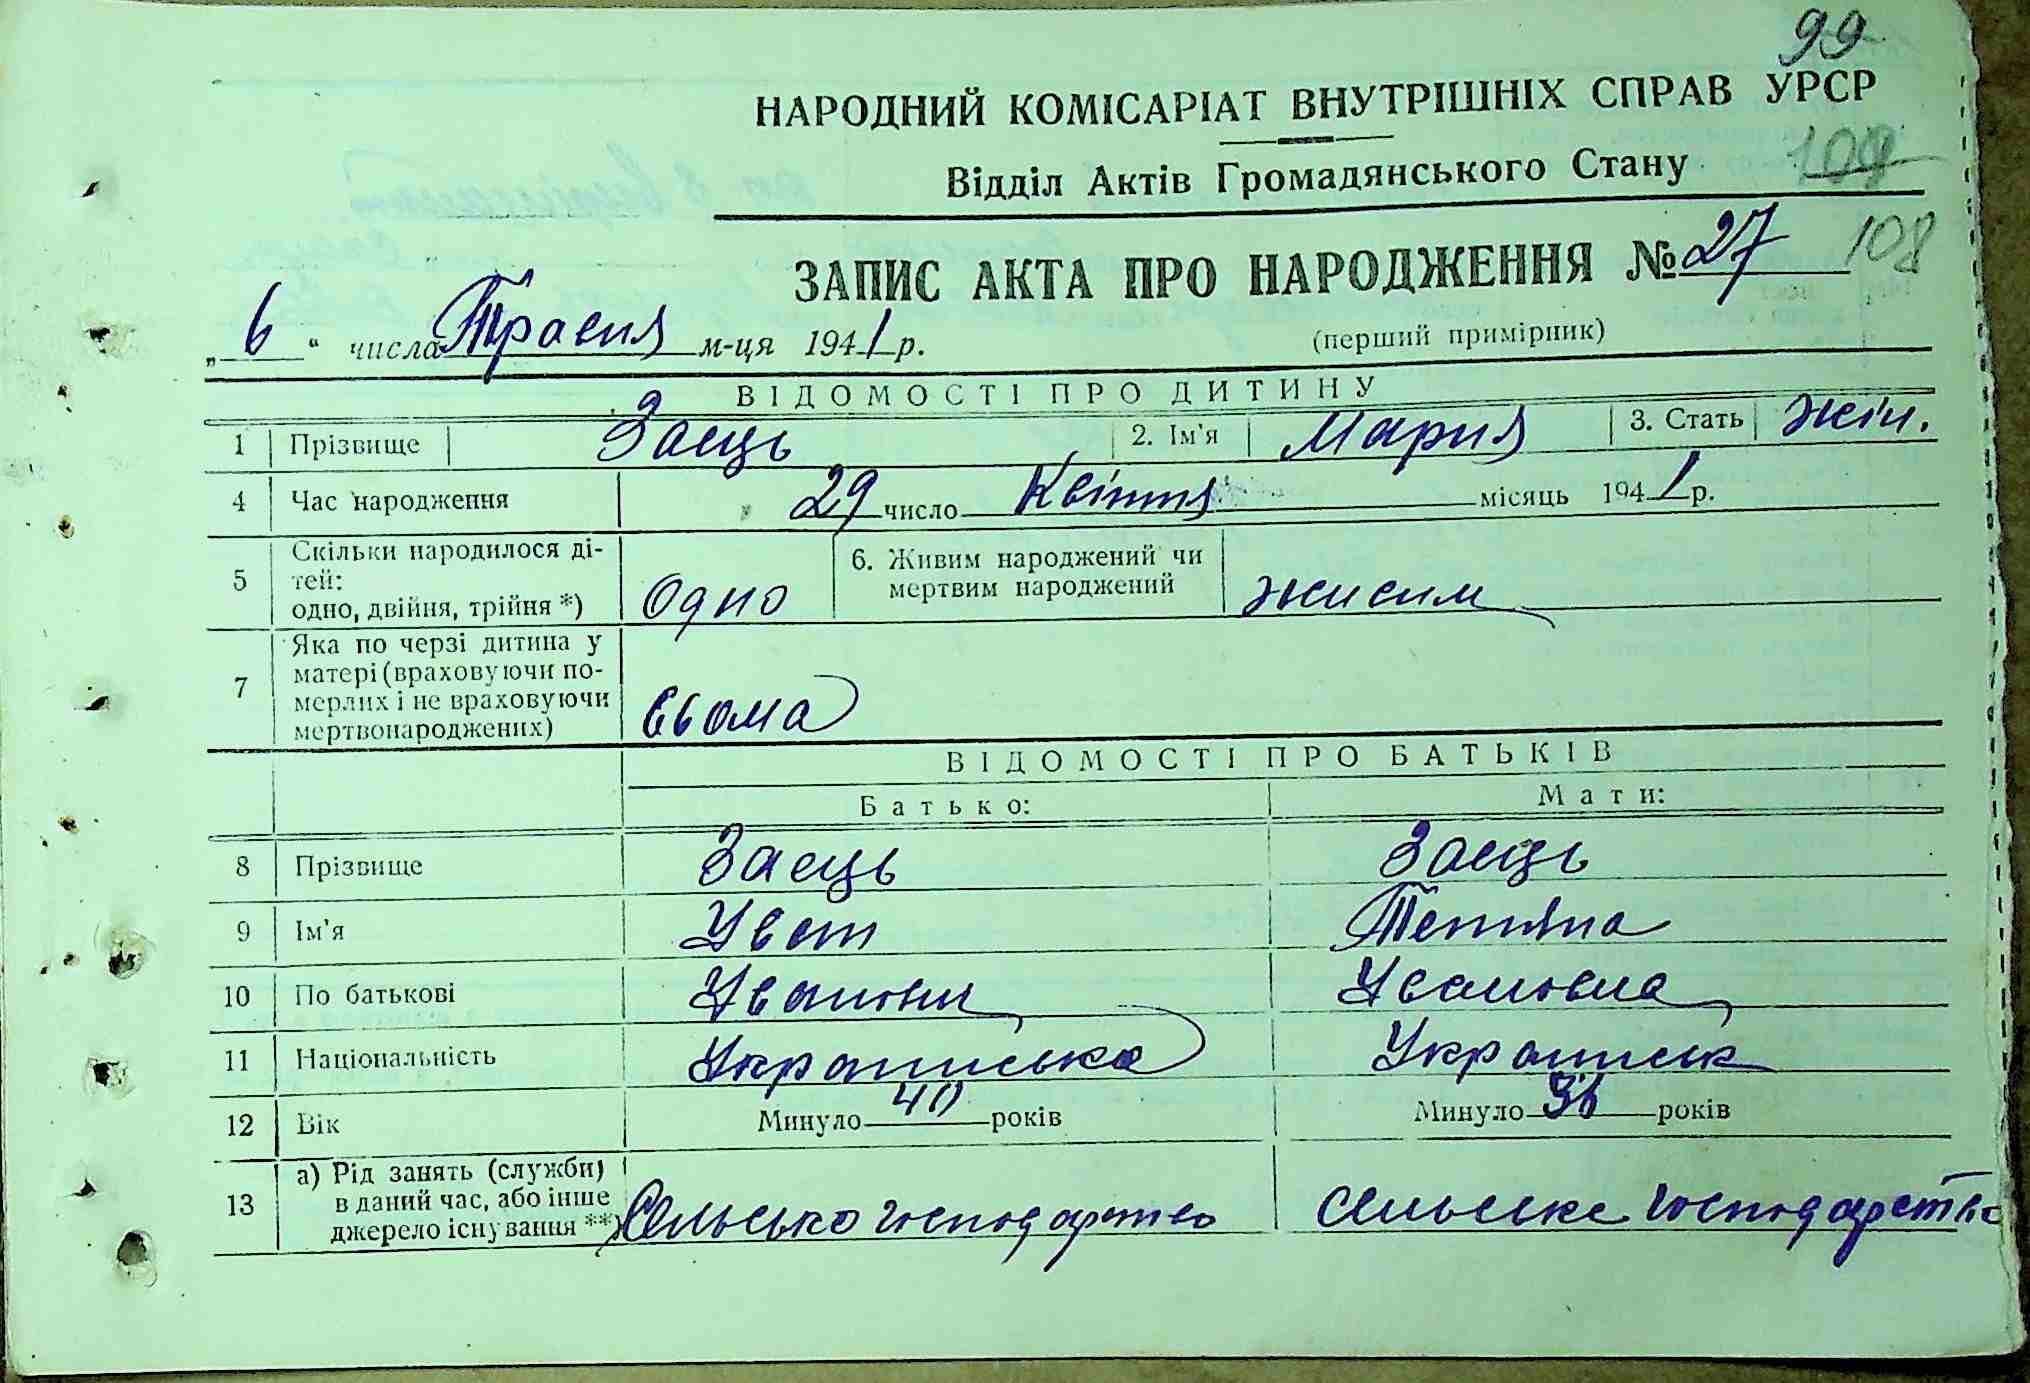 99
НАРОДНИЙ КОМІСАРІАТ ВНУТРІШНІХ СПРАВ УРСР
Відділ Актів Громадянського Стану 109
ЗАПИС АКТА ПРО НАРОДЖЕННЯ № 27 108
„6“ числа Травня м-ця 1941 р. (перший примірник)
ВІДОМОСТІ ПРО ДИТИНУ
1 Прізвище Заєць 2. Ім'я Мария 3. Стать жін.
4 Час народження 29 число Квітня місяць 1941 р.
5 Скільки народилося ді-
тей:
одно, двійня, трійня *) Одно 6. Живим народжений чи
мертвим народжений живим
7 Яка по черзі дитина у
матері (враховуючи по-
мерлих і не враховуючи
мертвонароджених) сьома
ВІДОМОСТІ ПРО БАТЬКІВ
Батько: Мати:
8 Прізвище Заєць Заєць
9 Ім'я Тетяна
10 По батькові Ивановна
11 Національність Українська
12 Вік Минуло 40 років Минуло 36 років
13 а) Рід занять (служби)
в даний час, або інше
джерело існування **) Сільсько господарство сільське господарство